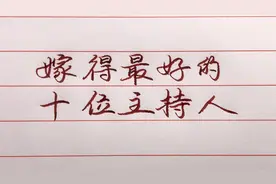 嫁得最好的
十位主持人